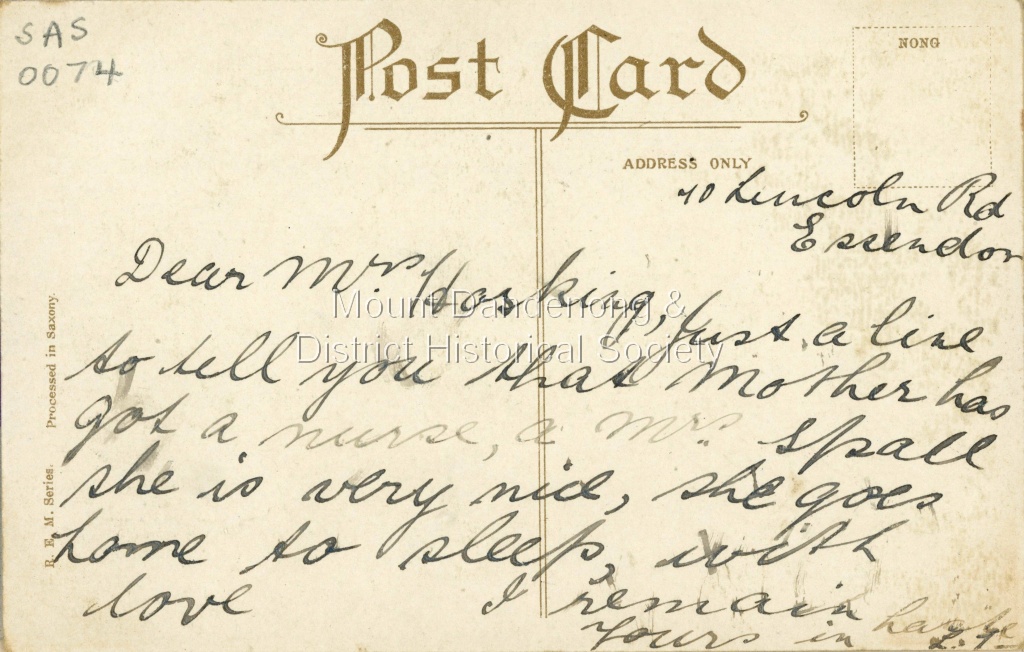 SAS
0074
Post Card
NONG
ADDRESS ONLY
10 Lincoln Rd
Essendon
Dear Mrs Hosking, Just a line
to tell you that Mother has
got a nurse, a Mrs. Spall
she is very nice, she goes
home to sleep, with
love I remain
Yours in haste
Mount Dandenong &
District Historical Society
R. E. M. Series. Processed in Saxony.